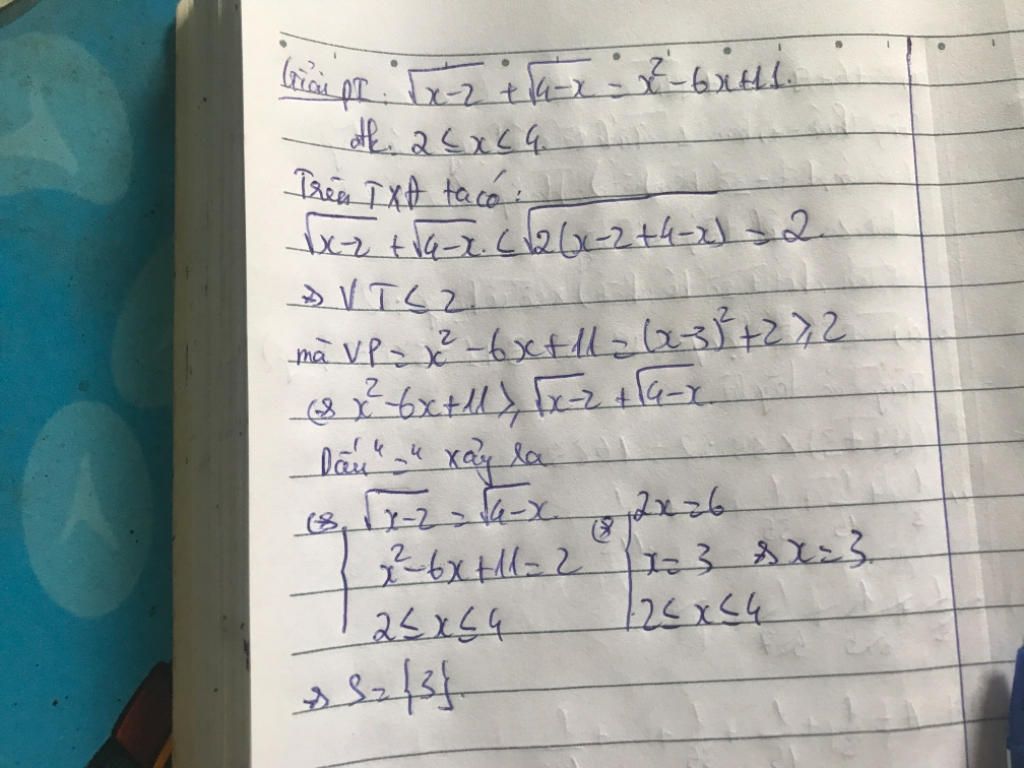 Giải PT: √(x-2) + √(4-x) = x² - 6x + 11.
đk: 2 ≤ x ≤ 4.
Trên TXĐ ta có:
√(x-2) + √(4-x) ≤ √(2(x-2+4-x)) = 2
⇒ VT ≤ 2
mà VP = x² - 6x + 11 = (x-3)² + 2 ≥ 2
⇔ x² - 6x + 11 ≥ √(x-2) + √(4-x)
Dấu "=" xảy ra
⇔ { √(x-2) = √(4-x) ⇔ { 2x = 6
x² - 6x + 11 = 2 x = 3 ⇒ x = 3.
2 ≤ x ≤ 4 2 ≤ x ≤ 4
⇒ S = {3}.